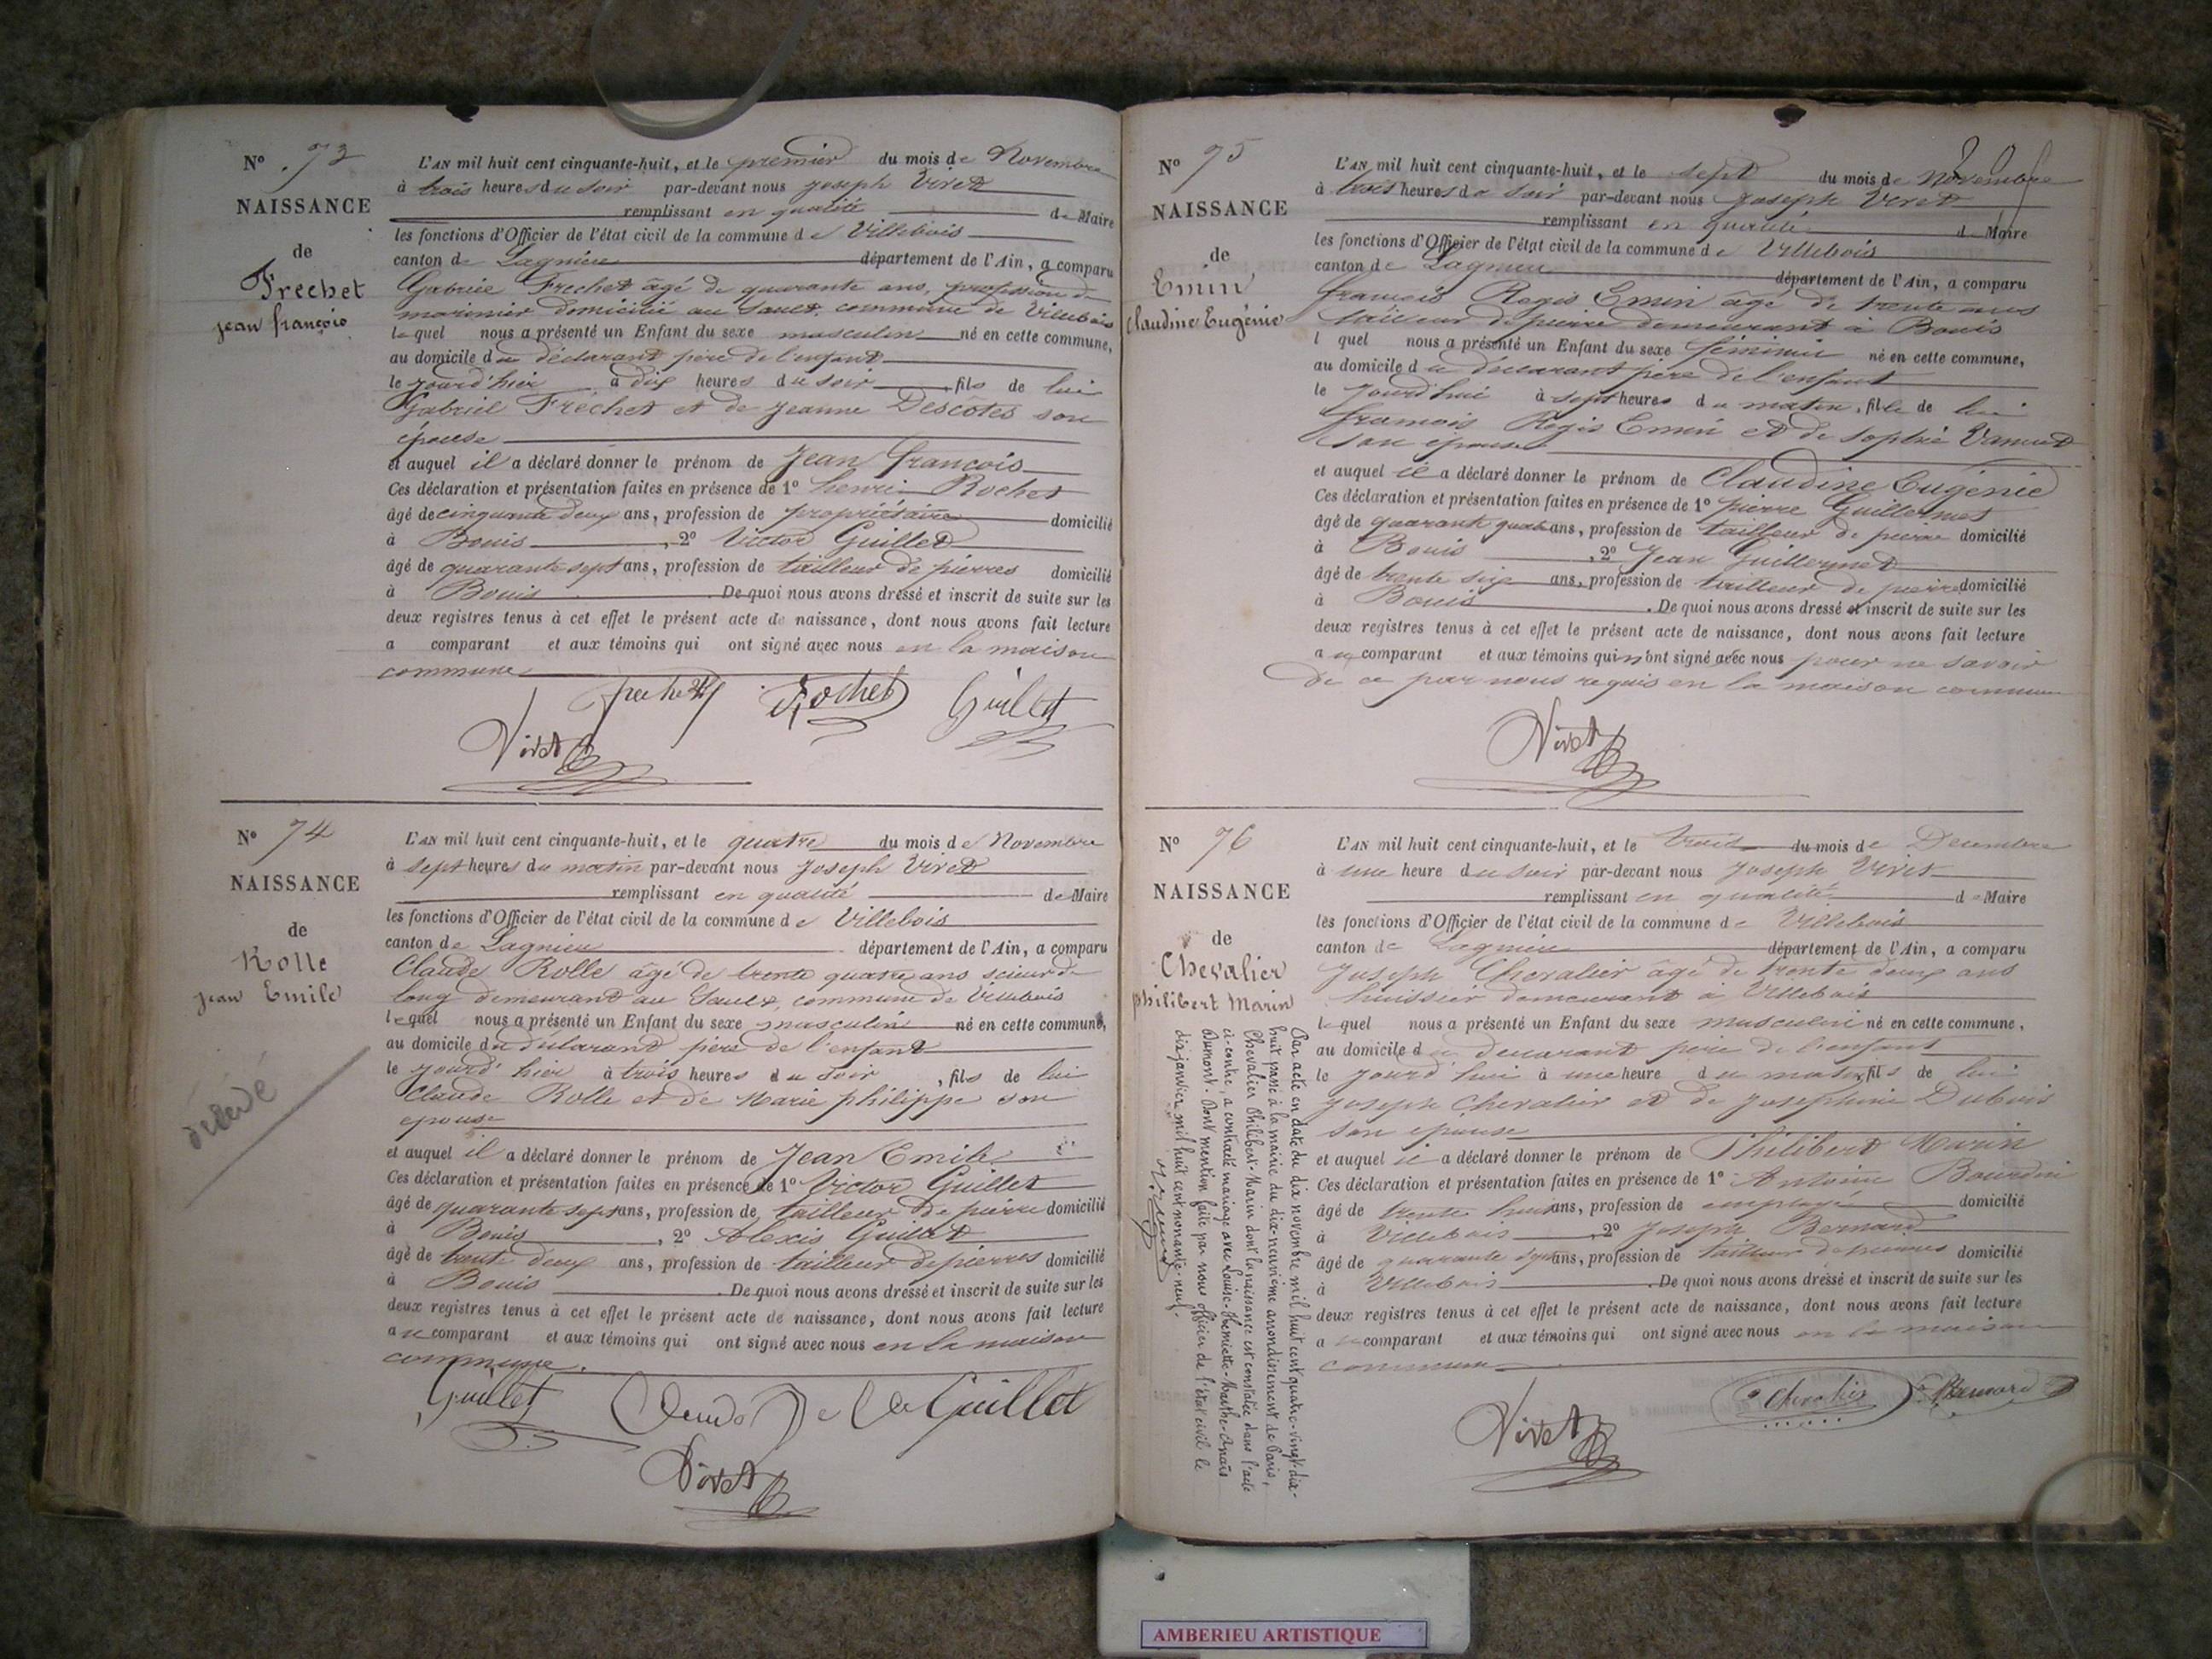 N° 73
NAISSANCE
de
Frechet
jean françois
L'AN mil huit cent cinquante-huit, et le premier du mois de Novembre
à trois heures du soir par-devant nous Joseph Viret
remplissant en qualité de Maire
les fonctions d'Officier de l'état civil de la commune de Villebois
canton de Lagnieu département de l'Ain, a comparu
Gabriel Frechet âgé de quarante ans, profession de
marinier domicilié au Sault, commune de Villebois
lequel nous a présenté un Enfant du sexe masculin né en cette commune,
au domicile du déclarant père de l'enfant
le jourd'hier à dix heures du soir, fils de lui
Gabriel Fréchet et de Jeanne Descôtes son
épouse
et auquel il a déclaré donner le prénom de Jean françois
Ces déclaration et présentation faites en présence de 1° henri Rochet
âgé de cinquante deux ans, profession de propriétaire domicilié
à Bouis, 2° Victor Guillet
âgé de quarante sept ans, profession de tailleur de pierres domicilié
à Bouis. De quoi nous avons dressé et inscrit de suite sur les
deux registres tenus à cet effet le présent acte de naissance, dont nous avons fait lecture
a comparant et aux témoins qui ont signé avec nous en la maison
commune
frechet Rochet Guillet
Viret
N° 74
NAISSANCE
de
Rolle
jean Emile
décédé
L'AN mil huit cent cinquante-huit, et le quatre du mois de Novembre
à sept heures du matin par-devant nous Joseph Viret
remplissant en qualité de Maire
les fonctions d'Officier de l'état civil de la commune de Villebois
canton de Lagnieu département de l'Ain, a comparu
Claude Rolle âgé de trente quatre ans scieur de
long demeurant au Sault, commune de Villebois
lequel nous a présenté un Enfant du sexe masculin né en cette commune,
au domicile du déclarant père de l'enfant
le jourd'hier à trois heures du soir, fils de lui
Claude Rolle et de Marie philippe son
epouse
et auquel il a déclaré donner le prénom de Jean Emile
Ces déclaration et présentation faites en présence de 1° Victor Guillet
âgé de quarante sept ans, profession de tailleur de pierre domicilié
à Bouis, 2° Alexis Guillet
âgé de trente deux ans, profession de tailleur de pierres domicilié
à Bouis. De quoi nous avons dressé et inscrit de suite sur les
deux registres tenus à cet effet le présent acte de naissance, dont nous avons fait lecture
au comparant et aux témoins qui ont signé avec nous en la maison
commune.
Guillet Guillet
Viret
N° 75
NAISSANCE
de
Emin
Claudine Eugénie
L'AN mil huit cent cinquante-huit, et le sept du mois de Novembre
à trois heures du soir par-devant nous Joseph Viret
remplissant en qualité de Maire
les fonctions d'Officier de l'état civil de la commune de Villebois
canton de Lagnieu département de l'Ain, a comparu
françois Regis Emin âgé de trente ans
tailleur de pierre demeurant à Bouis
l quel nous a présenté un Enfant du sexe féminin né en cette commune,
au domicile du déclarant père de l'enfant
le jourd'hui à sept heures du matin, fille de lui
françois Régis Emin et de Sophie
son epouse
et auquel il a déclaré donner le prénom de Claudine Eugénie
Ces déclaration et présentation faites en présence de 1° pierre Guillermet
âgé de quarante quatre ans, profession de tailleur de pierre domicilié
à Bouis, 2° Jean Guillermet
âgé de trente six ans, profession de tailleur de pierre domicilié
à Bouis. De quoi nous avons dressé et inscrit de suite sur les
deux registres tenus à cet effet le présent acte de naissance, dont nous avons fait lecture
au comparant et aux témoins qui n'ont signé avec nous pour ne savoir
de ce par nous requis en la maison commune
Viret
N° 76
NAISSANCE
de
Chevalier
philibert Marin
Par acte en date du dix novembre mil huit cent quatre-vingt-dix-
huit passé à la mairie du dix-neuvième arrondissement de Paris,
Chevalier Philibert-Marin dont la naissance est constatée dans l'acte
ci-contre, a contracté mariage avec Louise-Henriette-Marthe-Anaïs
Dumont. Dont mention faite par nous officier de l'état civil le
dix janvier mil huit cent nonante-neuf.
L'AN mil huit cent cinquante-huit, et le trois du mois de Decembre
à une heure du soir par-devant nous Joseph Viret
remplissant en qualité de Maire
les fonctions d'Officier de l'état civil de la commune de Villebois
canton de Lagnieu département de l'Ain, a comparu
Joseph Chevalier âgé de trente deux ans
huissier demeurant à Villebois
lequel nous a présenté un Enfant du sexe masculin né en cette commune,
au domicile du déclarant père de l'enfant
le jourd'hui à une heure du matin, fils de lui
Joseph Chevalier et de Josephine Dubois
son epouse
et auquel il a déclaré donner le prénom de Philibert Marin
Ces déclaration et présentation faites en présence de 1° Antoine Bourdin
âgé de trente huit ans, profession de employé domicilié
à Villebois, 2° Joseph Bernard
âgé de quarante ans, profession de tailleur de pierres domicilié
à Villebois. De quoi nous avons dressé et inscrit de suite sur les
deux registres tenus à cet effet le présent acte de naissance, dont nous avons fait lecture
au comparant et aux témoins qui ont signé avec nous en la maison
commune
Chevalier Bernard
Viret
AMBERIEU ARTISTIQUE